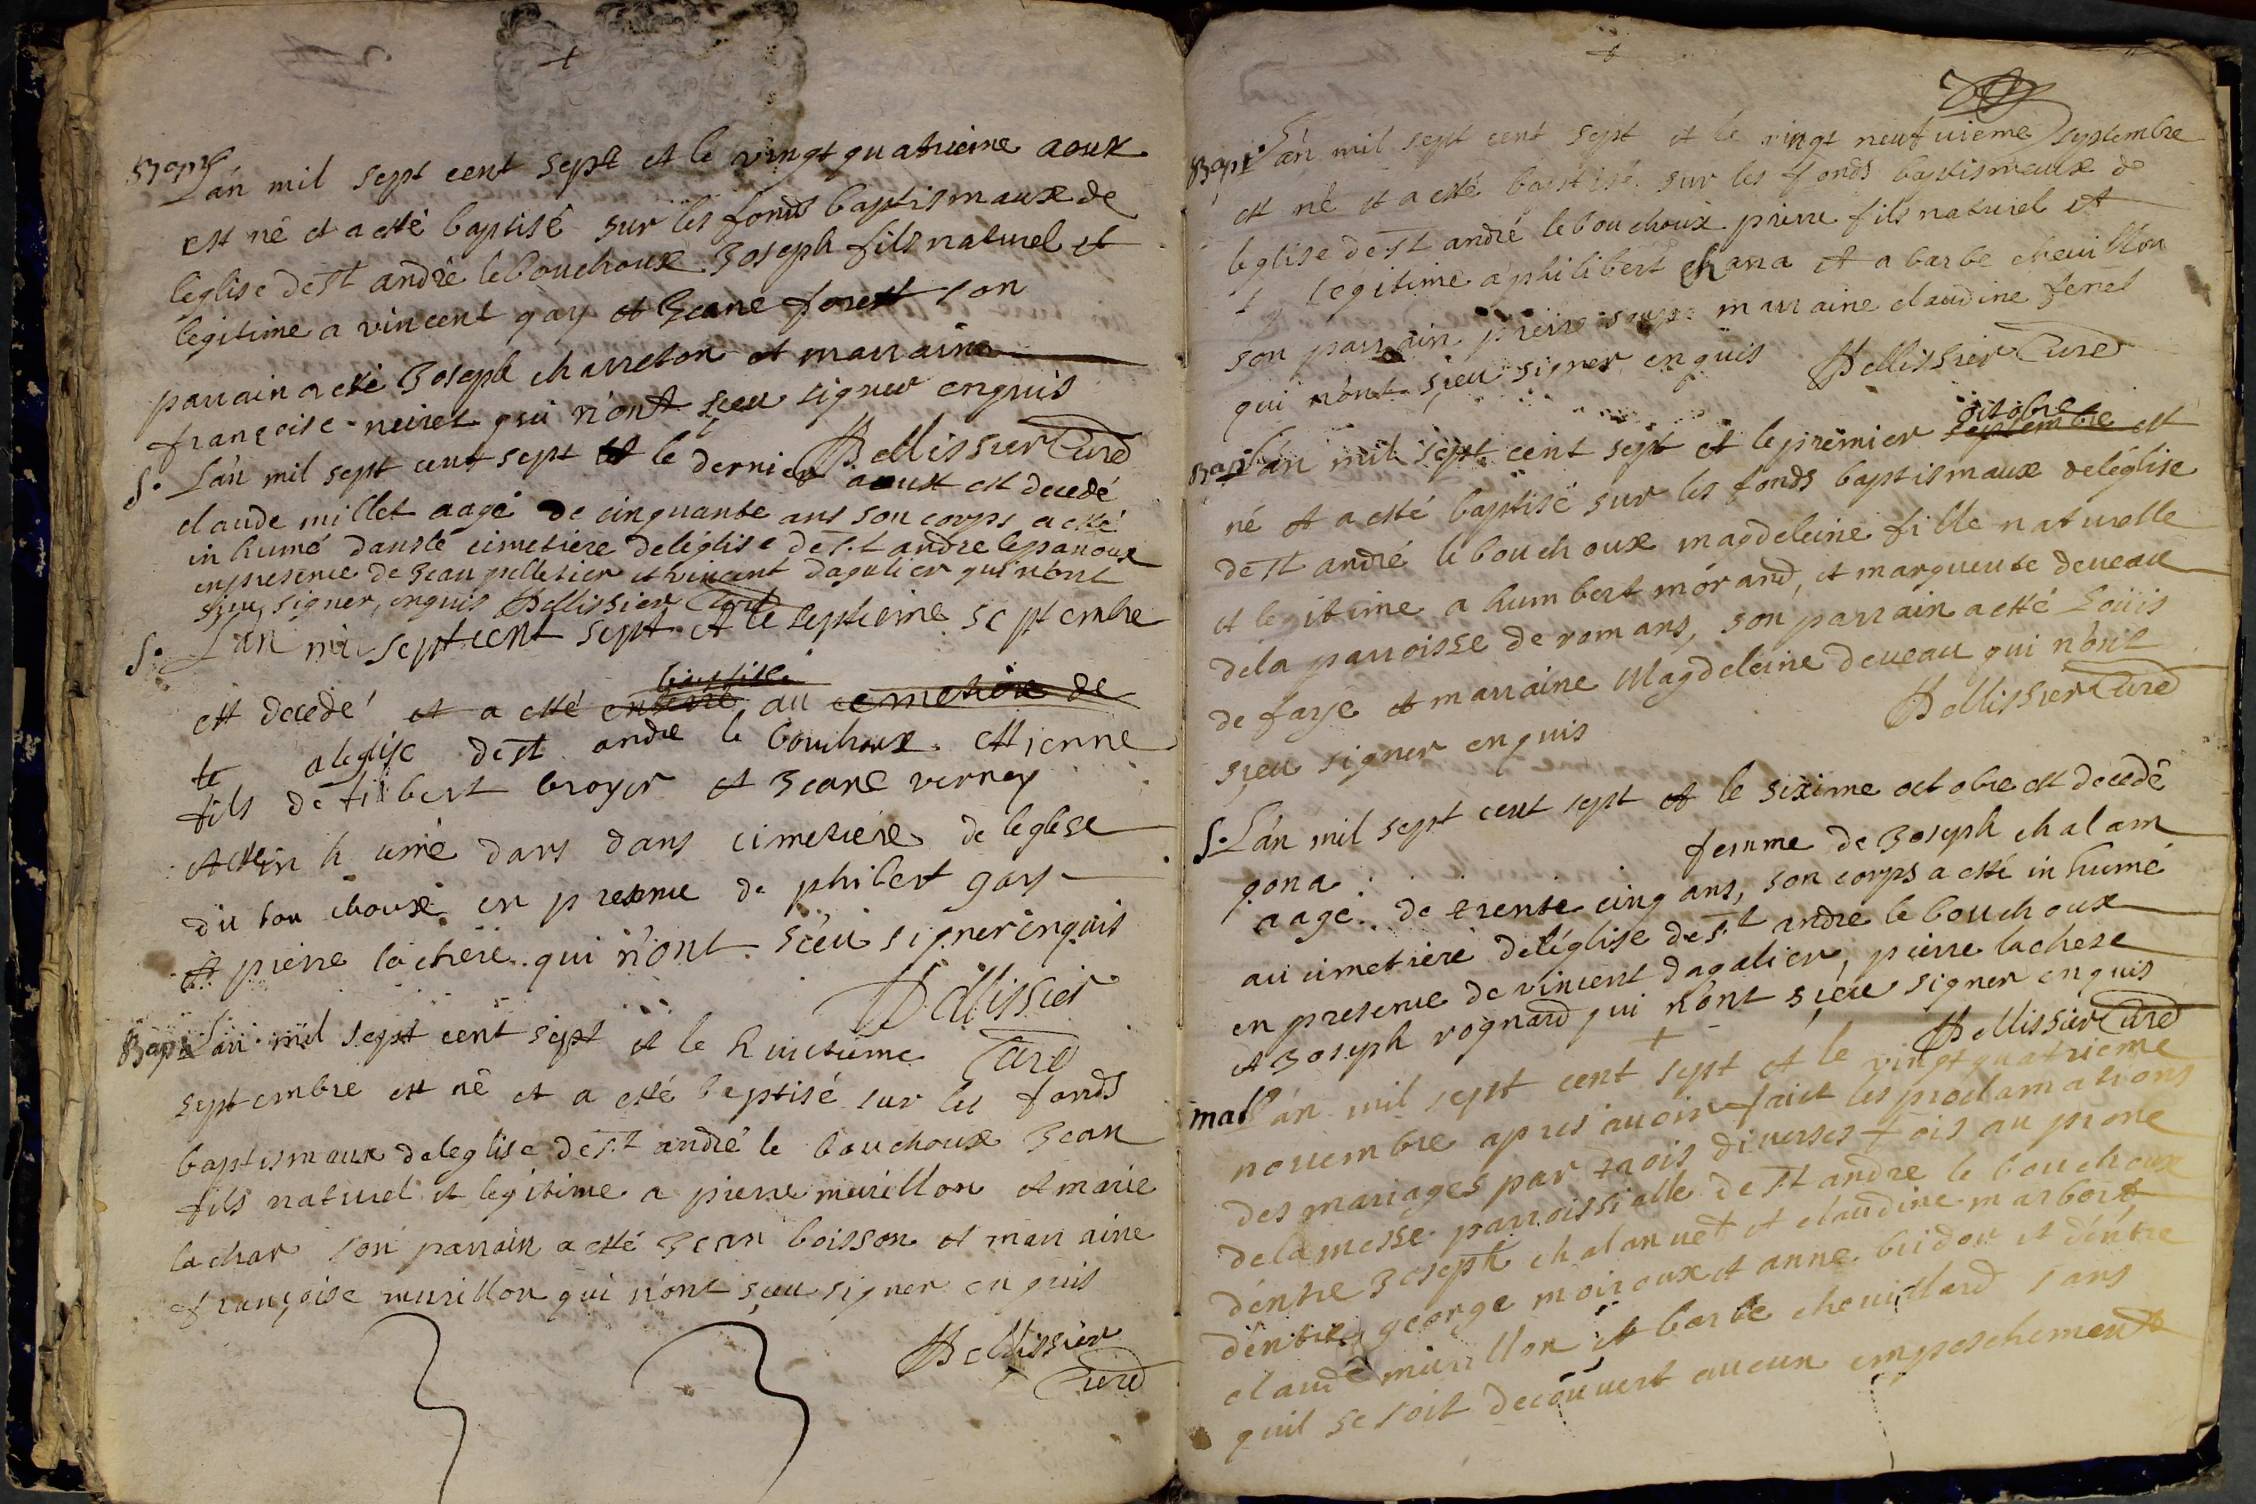 Bapt
L'an mil sept cent sept et le vingt quatrieme aoux
est né et a esté baptisé sur les fonds baptismaux de
leglise de st andré le bouchoux Joseph fils naturel et
legitime a vincent gay et Jeane forest son
parrain a esté Joseph charreton et marraine
françoise neiret qui n'ont sceu signer enquis
Pellissier Curé
S. L'an mil sept cent sept et le dernier aoust est decedé
claude millet aagé de cinquante ans son corps a esté
in humé dans le cimetiere de léglise de st andre lepanoux
en presence de Jean pelletier et vincent dagalier qui n'ont
sceu signer, enquis Pellissier Curé
S. L'an mil sept cent sept et le septieme septembre
baptise
est decedé et a esté enterré au cemetiere de
te a leglise de st andre le bouchoux ettienne
fils de filbert broyer et Jeane verney
et esté in h umé dans dans cimetiere de leglese
du bou choux en presence de philbert gay
et pierre lachere qui n'ont sceu signer enquis
Pellissier
Curé
Bapt L'an mil sept cent sept et le huictieme
septembre est né et a esté baptisé sur les fonds
baptismaux de leglise de st andré le bouchoux Jean
fils naturel et legitime a pierre murillon et marie
lachar son parrain a esté Jean boisson et marraine
françoise murillon qui n'ont sceu signer enquis
Pellissier
Curé
Bapt L'an mil sept cent sept et le vingt neufuieme septembre
est né et a esté baptisé sur les fonds baptismaux de
leglise de st andré le bouchoux pierre fils naturel et
légitime a philibert chana et a barbe cheuillon
son parrain pierre marraine claudine feret
qui n'ont sceu signer enquis Pellissier Curé
octobre
Bapt L'an mil sept cent sept et le premier septembre est
né et a esté baptisé sur les fonds baptismaux de léglise
de st andré le bouchoux magdeleine fille naturelle
et legitime a humbert morand, et marguerite deueau
de la parroisse de romans, son parrain a esté Loüis
de faye et marraine Magdeleine deueau qui n'ont
sceu signer enquis Pellissier Curé
S. L'an mil sept cent sept et le sixieme octobre est decedé
femme de Joseph chalam
gona
aagé de trente cinq ans, son corps a esté in humé
au cimetiere de léglise de st andre le bouchoux
en presence de vincent dagalier, pierre lachere
et Joseph rognard qui n'ont sceu signer enquis
Pellissier Curé
mar L'an mil sept cent sept et le vingt quatrieme
nouembre apres auoir faict les proclamations
des mariages par trois diuerses fois au prone
de la messe parroissialle de st andre le bouchoux
d'entre Joseph chalanuet et claudine marbort
d'entre george moiroux et anne bridor et d'entre
claude murillon et barbe cheuillard sans
quil se soit decouuert aucun empeschement